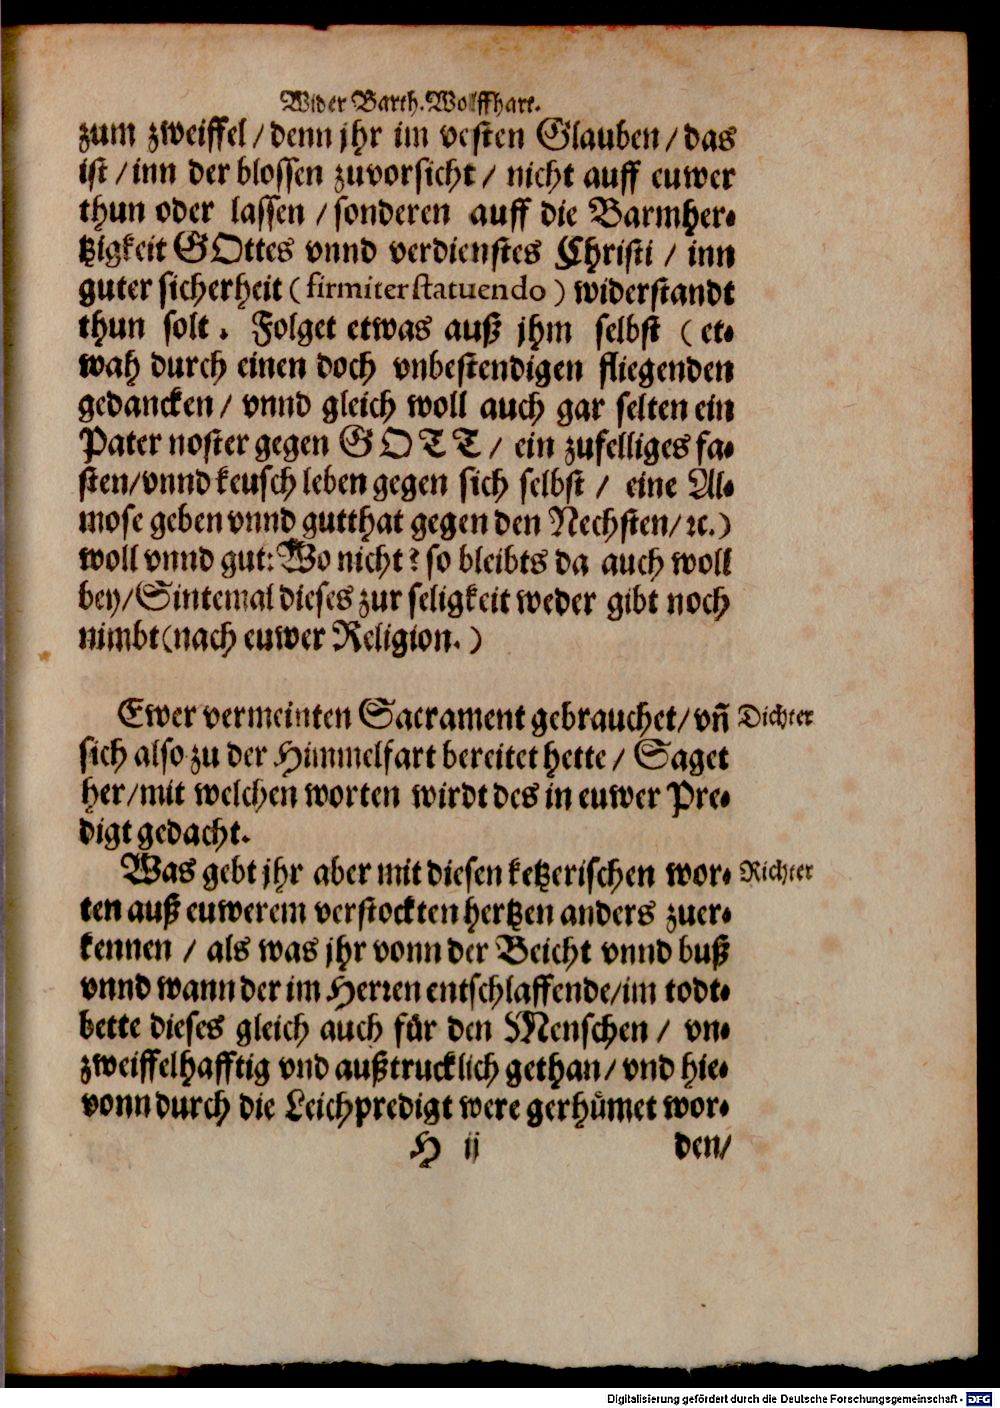 Wider Barth. Wolffhart.
zum zweiffel / denn jhr im vesten Glauben / das
ist / inn der blossen zuvorsicht / nicht auff euwer
thun oder lassen / sonderen auff die Barmher⸗
tzigkeit GOttes vnnd verdienstes Christi / inn
guter sicherheit ( firmiter statuendo ) widerstandt
thun solt. Folget etwas auß jhm selbst ( et⸗
wah durch einen doch vnbestendigen fliegenden
gedancken / vnnd gleich woll auch gar selten ein
Pater noster gegen GOTT / ein zufelliges fa⸗
sten/vnnd keusch leben gegen sich selbst / eine Al⸗
mose geben vnnd gutthat gegen den Nechsten/ ꝛc.)
woll vnnd gut: Wo nicht? so bleibts da auch woll
bey/Sintemal dieses zur seligkeit weder gibt noch
nimbt(nach euwer Religion. )
Ewer vermeinten Sacrament gebrauchet/ vñ Dichter
sich also zu der Himmelfart bereitet hette / Saget
her/mit welchen worten wirdt des in euwer Pre⸗
digt gedacht.
Was gebt jhr aber mit diesen ketzerischen wor⸗ Richter
ten auß euwerem verstockten hertzen anders zuer⸗
kennen / als was jhr vonn der Beicht vnnd buß
vnnd wann der im Herren entschlaffende/im todt⸗
bette dieses gleich auch für den Menschen / vn⸗
zweiffelhafftig vnd außtrucklich gethan/ vnd hie⸗
vonn durch die Leichpredigt were gerhůmet wor⸗
H ij den/
Digitalisierung gefördert durch die Deutsche Forschungsgemeinschaft - DFG